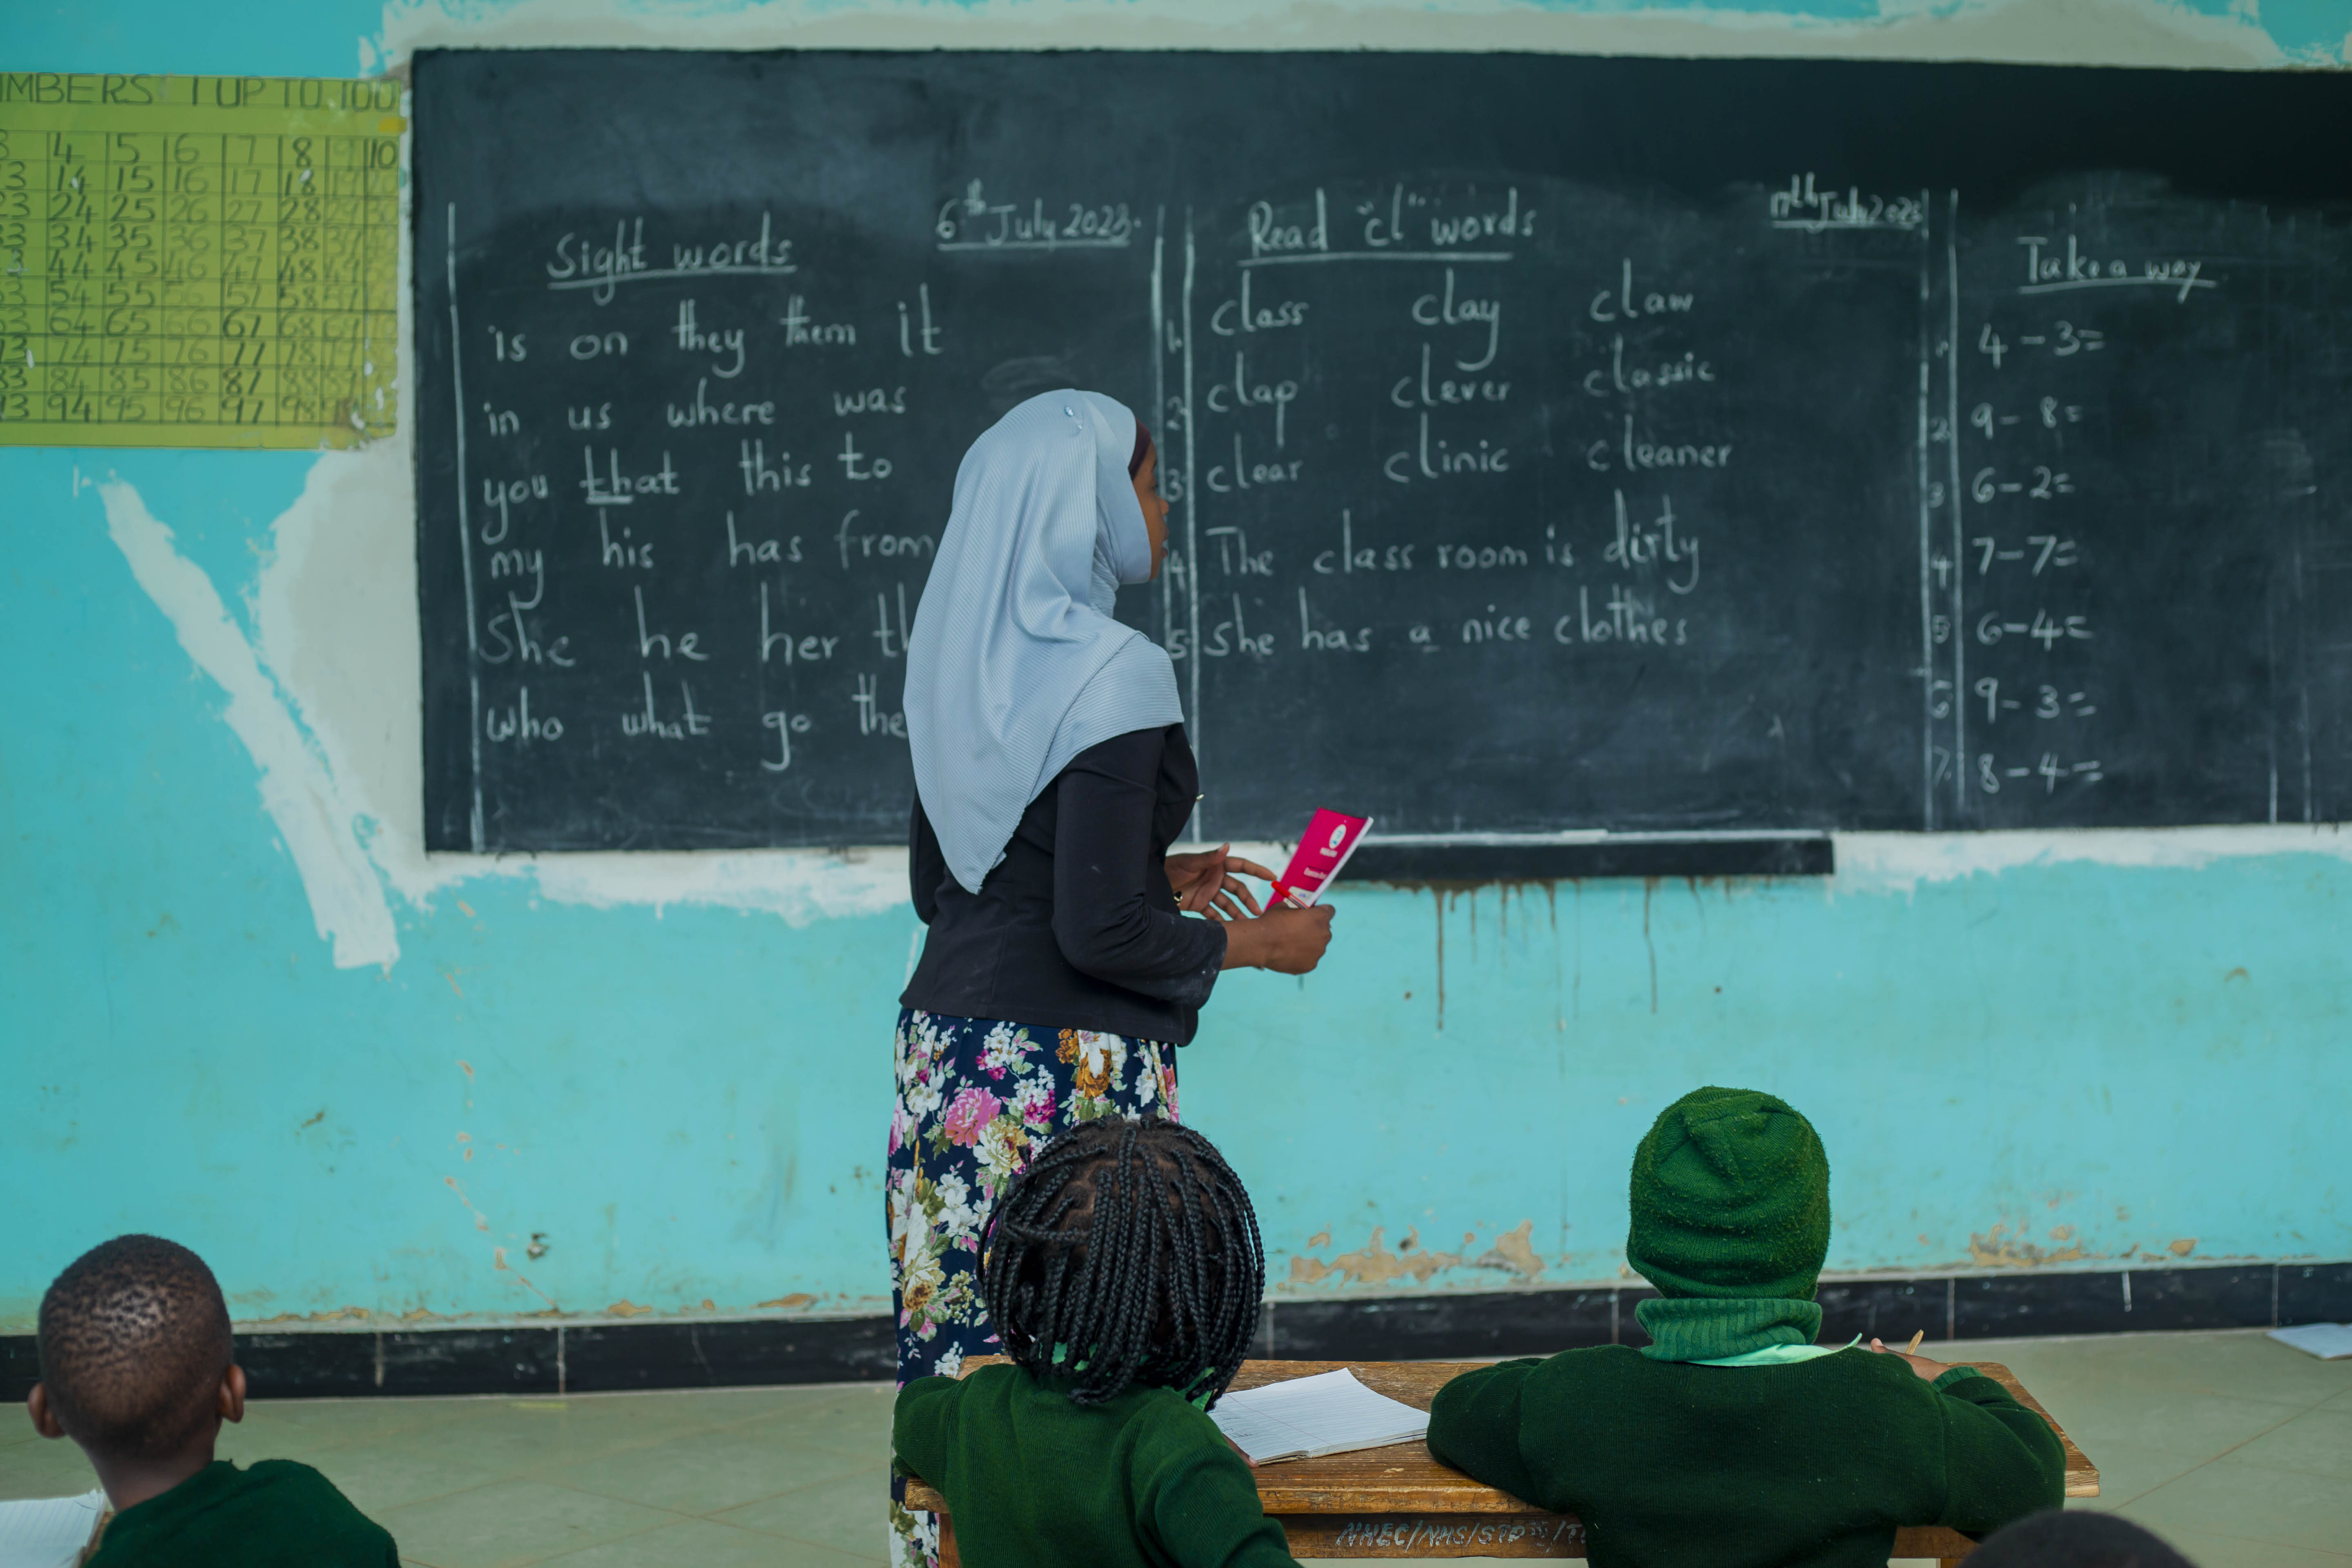 MBERS 1 UP TO 100
3 4 5 6 7 8 9 10
13 14 15 16 17 18 19 20
23 24 25 26 27 28 29 30
33 34 35 36 37 38
43 44 45 46 47 48
53 54 55 56 57 58
63 64 65 66 67 68
73 74 75 76 77 78
83 84 85 86 87 88
93 94 95 96 97 98
6th July 2023.
Sight words
is on they them it
in us where was
you that this to
my his has from
She he her th
who what go the
17th July 2023
Read "cl" words
1. class clay claw
2. clap clever classic
3. clear clinic cleaner
4. The class room is dirty
5. She has a nice clothes
Take a way
1. 4 - 3=
2. 9 - 8=
3 6 - 2=
4 7 - 7=
5 6 - 4=
6 9 - 3=
7. 8 - 4=
NHEC/NHS/STD